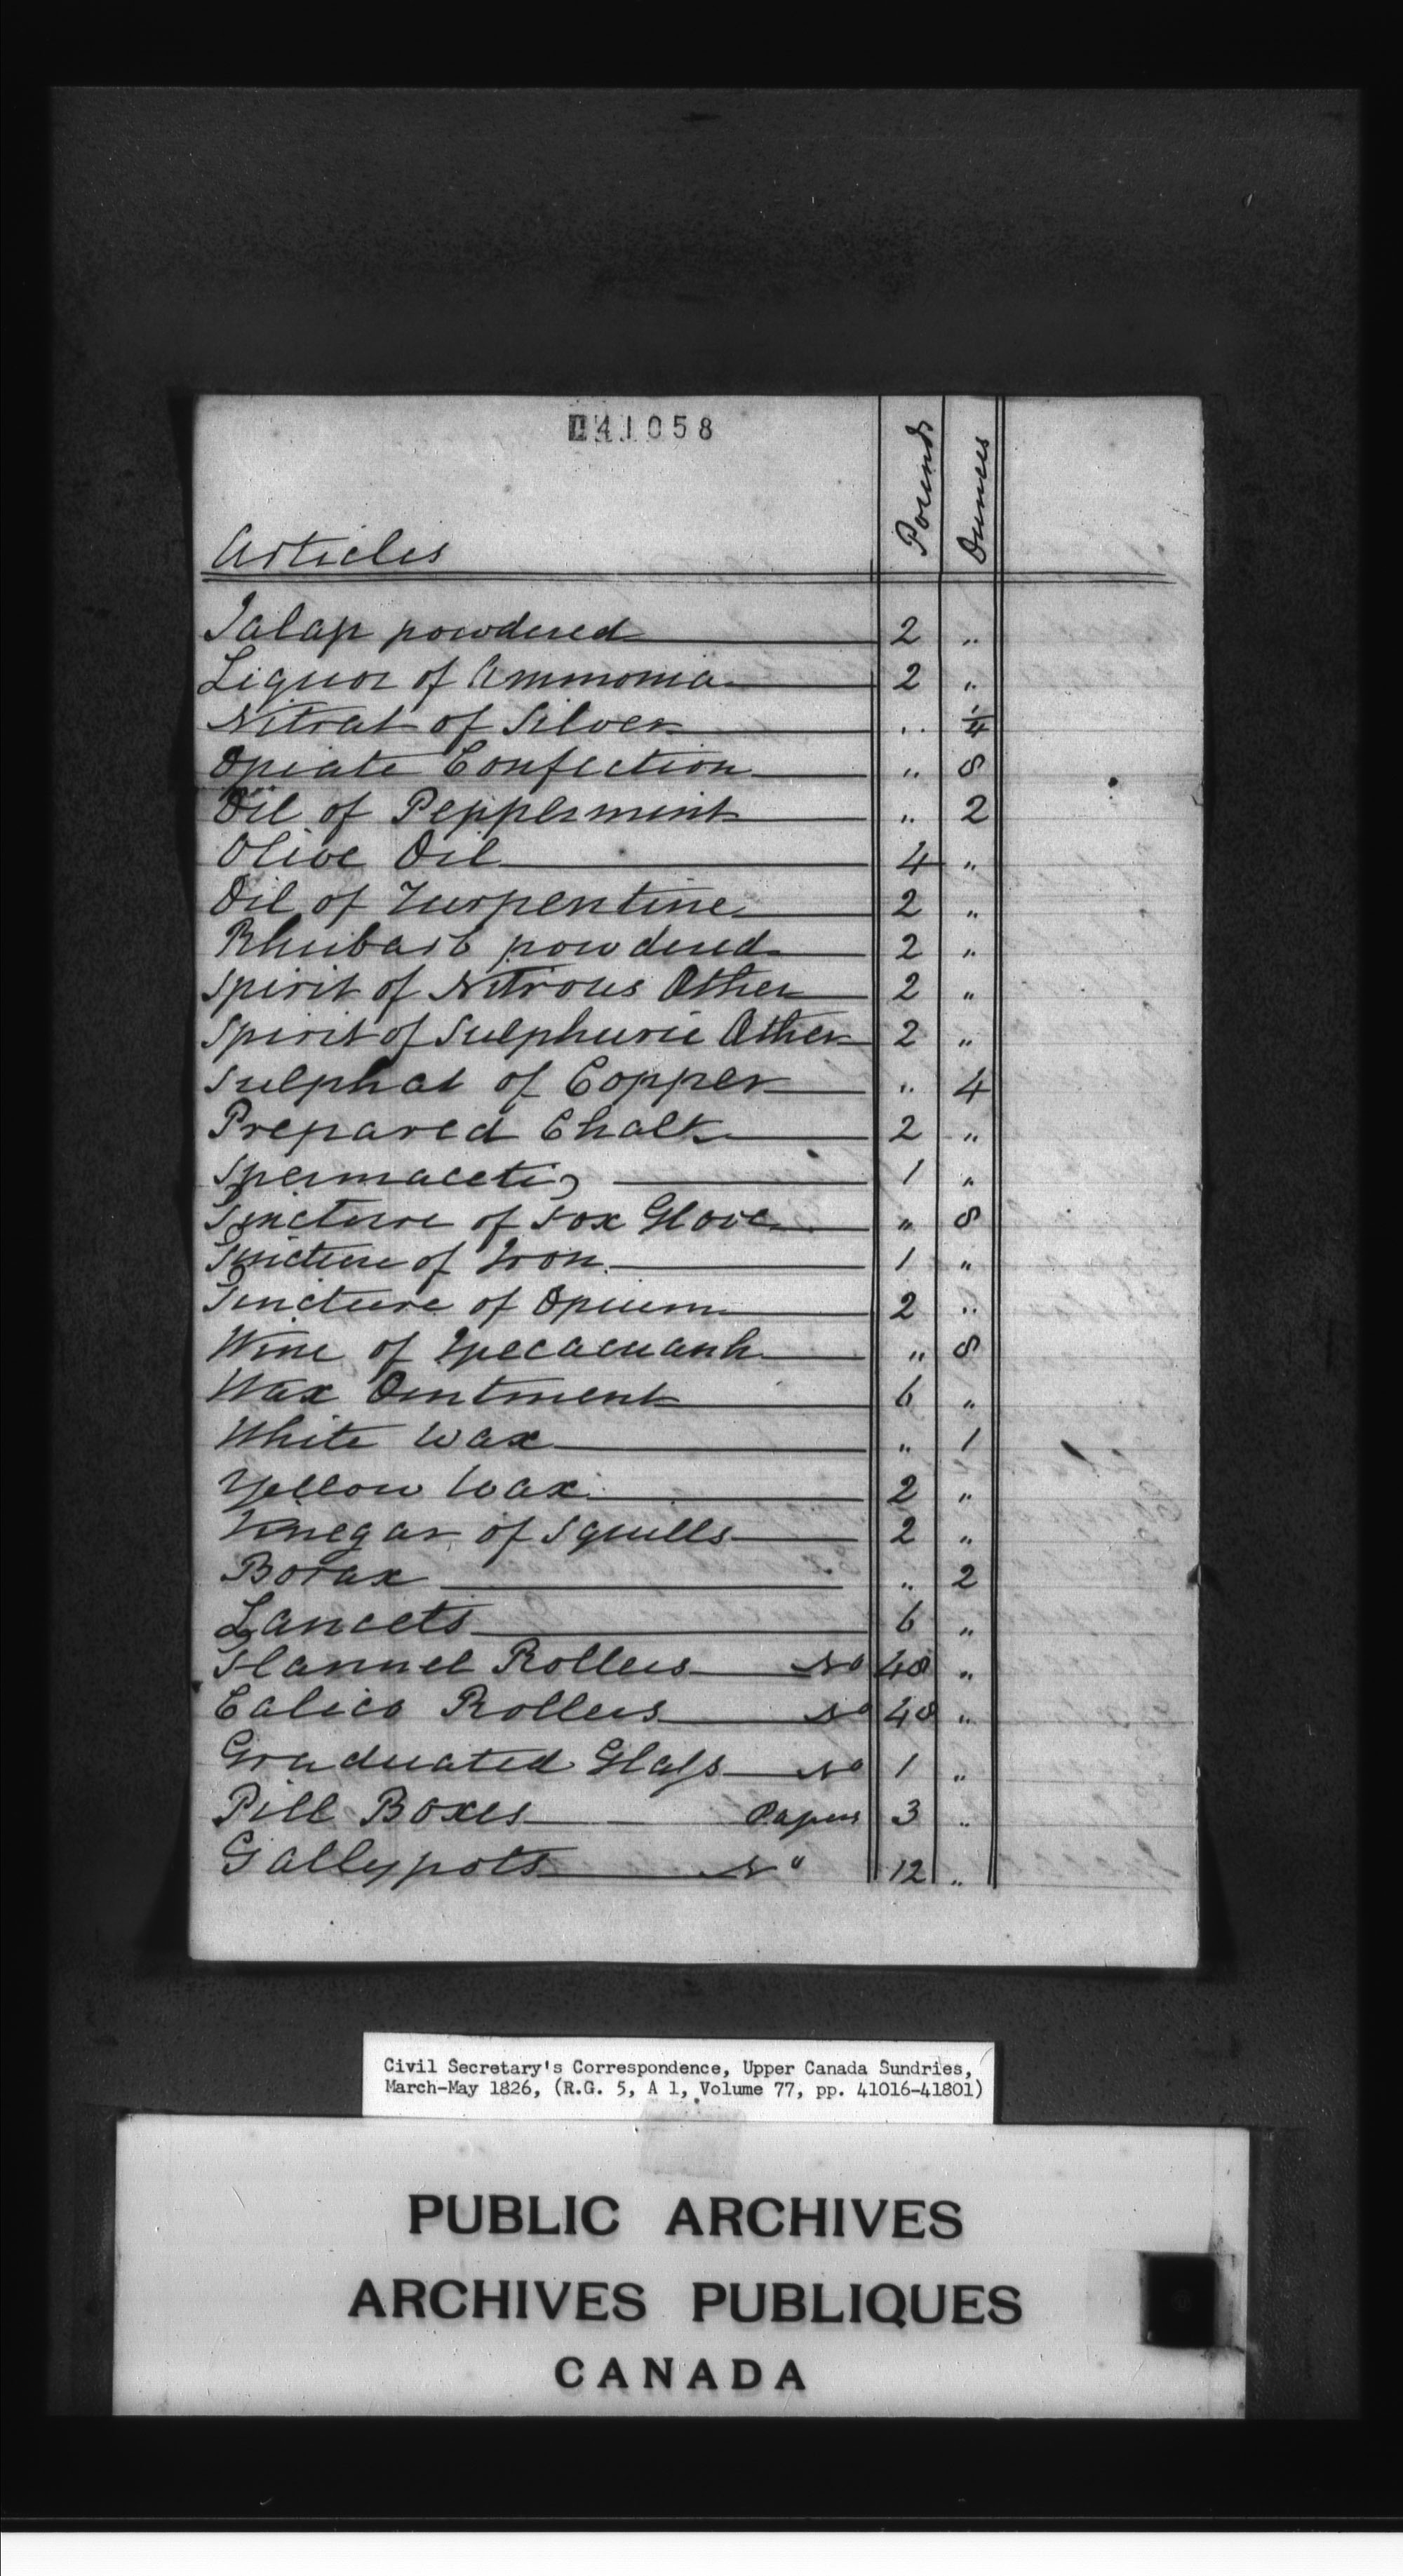 41058
Articles Pounds Ounces
Jalap powdered 2 "
Liquor of Ammonia 2 "
Nitrat of Silver " 1/4
Opiate Confection " 8
Oil of Peppermint " 2
Olive Oil 4 "
Oil of Turpentine 2 "
Rhubarb powdered 2 "
Spirit of Nitrous Æther 2 "
Spirit of Sulphuric Æther 2 "
Sulphat of Copper " 4
Prepared Chalk 2 "
Spermaceti 1 "
Tincture of Fox Glove " 8
Tincture of Iron 1 "
Tincture of Opium 2 "
Wine of Ipecacuanh " 8
Wax Ointment 6 "
White Wax " 1
Yellow Wax 2 "
Vinegar of Squills 2 "
Borax " 2
Lancets 6 "
Flannel Rollers No 48 "
Calico Rollers No 48 "
Graduated Glass No 1 "
Pill Boxes Papers 3 "
Gallypots No 12 "
Civil Secretary's Correspondence, Upper Canada Sundries,
March-May 1826, (R.G. 5, A 1, Volume 77, pp. 41016-41801)
PUBLIC ARCHIVES
ARCHIVES PUBLIQUES
CANADA